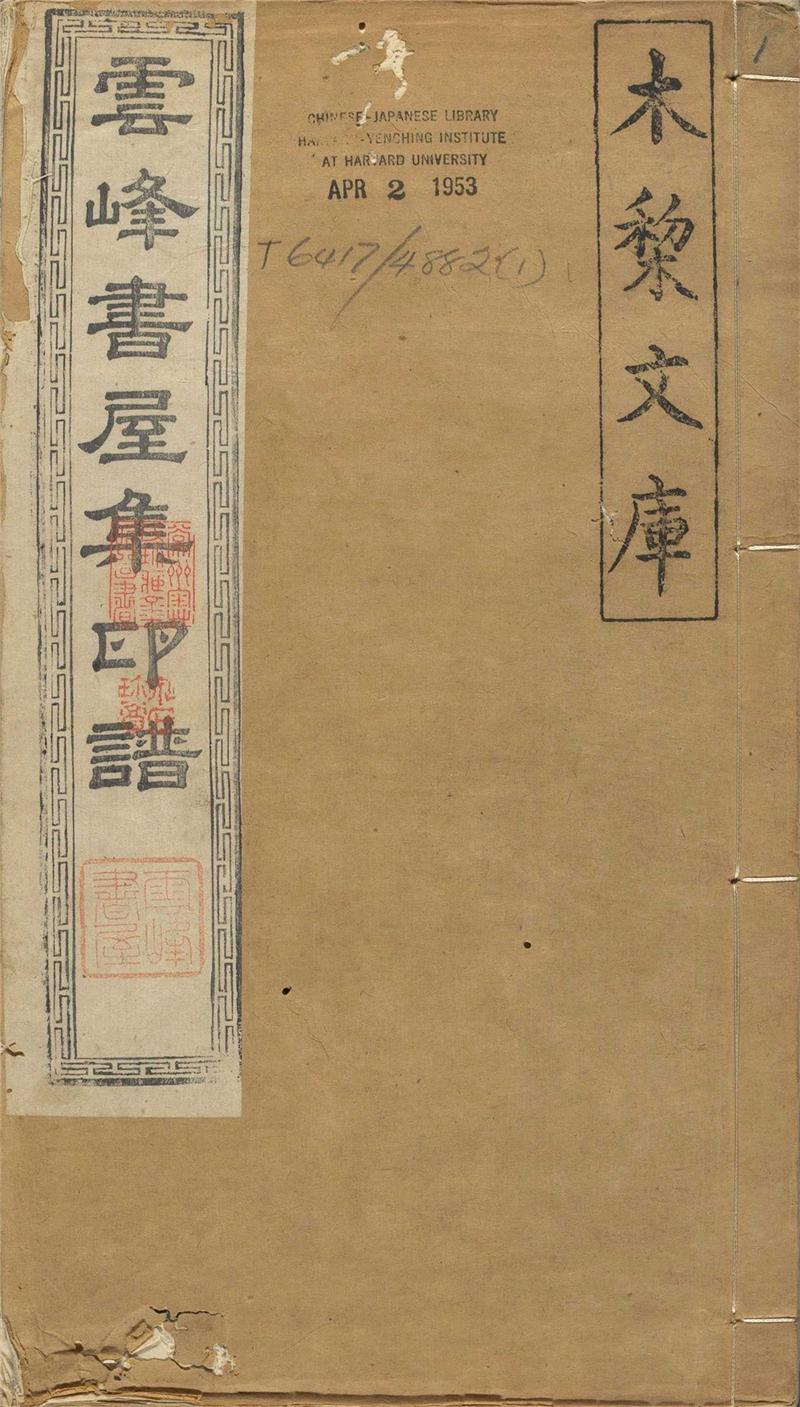 木黎文庫
1
CHINESE-JAPANESE LIBRARY
YENCHING INSTITUTE
AT HARVARD UNIVERSITY
APR 2 1953
T6417/4882(1)
雲峰書屋集印譜
雲峰書屋